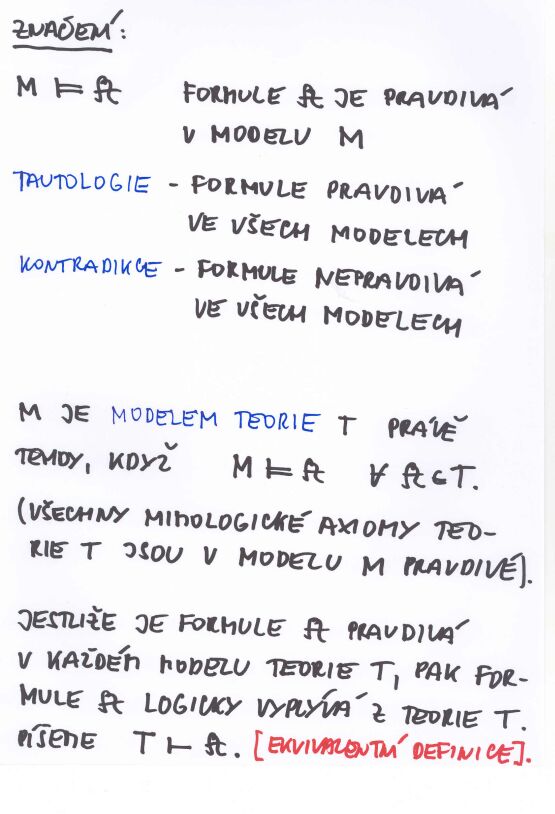 ZNAČENÍ:
M ⊨ 𝔄 FORMULE 𝔄 JE PRAVDIVÁ
V MODELU M
TAUTOLOGIE - FORMULE PRAVDIVÁ
VE VŠECH MODELECH
KONTRADIKCE - FORMULE NEPRAVDIVÁ
VE VŠECH MODELECH
M JE MODELEM TEORIE T PRÁVĚ
TEHDY, KDYŽ M ⊨ 𝔄 ∀ 𝔄 ∈ T.
(VŠECHNY MIMOLOGICKÉ AXIOMY TEO-
RIE T JSOU V MODELU M PRAVDIVÉ).
JESTLIŽE JE FORMULE 𝔄 PRAVDIVÁ
V KAŽDÉM MODELU TEORIE T, PAK FOR-
MULE 𝔄 LOGICKY VYPLÝVÁ Z TEORIE T.
PÍŠEME T ⊢ 𝔄. [EKVIVALENTNÍ DEFINICE].